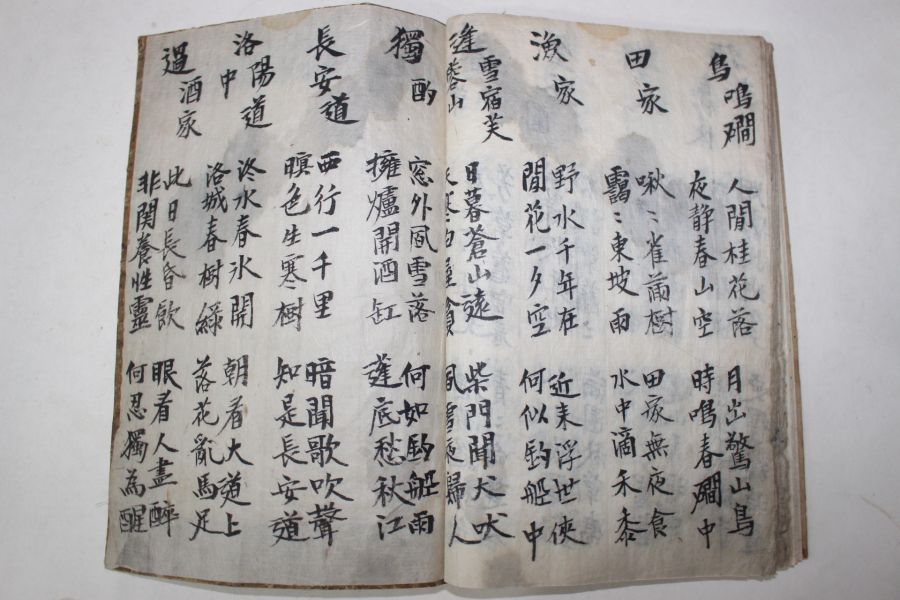 鳥鳴磵
人閒桂花落
夜静春山空
月出驚山鳥
時鳴春磵中
田家
啾〻雀蒲樹
靄〻東坡雨
田家無夜食
水中滴禾黍
漁家
野水千年在
閒花一夕空
近来浮世俠
何似釣船中
雪宿芙
逢蓉山
日暮蒼山遠
天寒白屋貧
柴門聞犬吠
風雪夜歸人
獨酌
窓外風雪落
擁爐開酒缸
何如釣船雨
蓬底愁秋江
長安道
西行一千里
暝色生寒樹
暗聞歌吹聲
知是長安道
洛陽道中
洛水春氷開
洛城春樹緑
朝看大道上
落花亂馬足
過酒家
此日長昏飲
非関養性靈
眼看人盡醉
何忍獨為醒